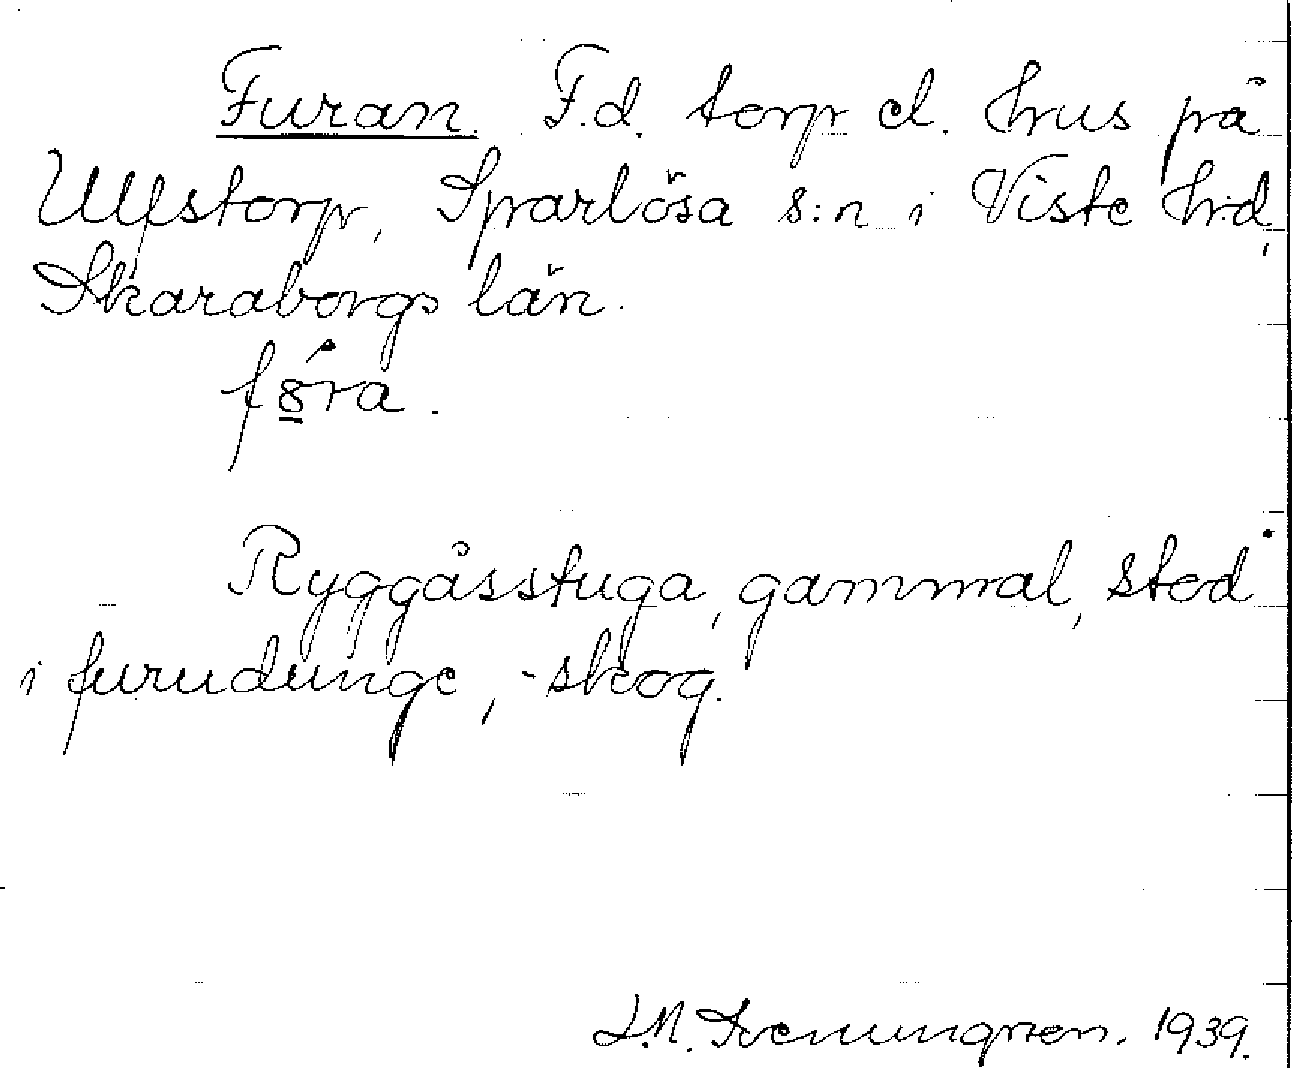 Furan. F.d. torp el. hus på
Ulfstorp, Sparlösa s:n i Viste hd,
Skaraborgs län.
fòra.
Ryggåsstuga, gammal, stod
i furudunge, -skog.
J.N. 1939.